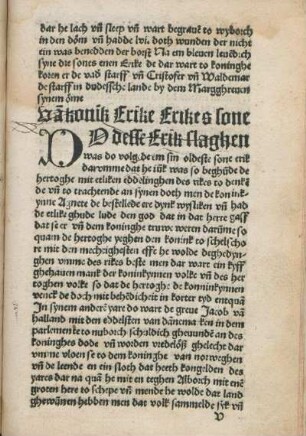 dar he lach vñ sleep vñ wart begrauẽ to wyborch
in den dõm vñ hadde lvi. doth wunden der nicht
ein was benedden der borst Na em bleuen leuẽdich
syne die sones enen Erike de dar wart to koninghe
koren er de vad starff vñ Cristofer vñ Waldemar
de starff in dudessche lande by dem Marggħreuen
synem õme
Vã konĩk Erike Erikes sone
Od desse Erik slagħen
was do volgede em sin oldeste sone erik
darvmme dat he iũck was so beghũde de
hertoghe mit etliken eddelinghen des rikes to denkẽ
de vñ to trachtende an synen doth men de konink-
ynne Agnete de bestellede ere dynk wysliken vñ had
de etlike ghude lude den god dat in dat herte gaff
dat se er vñ dem koninghe truwe weren darũme so
quam de hertoghe yeghen den konink to schelscho
re mit den mechtighesten effe he wolde deghedyn-
ghen vmme des rikes beste men dar wart ein kyff
ghehauen mank der koninkynnen volke vñ des her
toghen volke so dat de hertoghe de koninkynnen
venck de doch mit behẽdicheit in korter tyd entquã
In synem anderẽ yare do wart de greue Jacob vã
halland mit den eddelsten van dãnemarken in dem
parlemente to nuborch schuldich gheuundẽ an des
koninghes dode vñ worden vredelõß ghelecht dar
vmme vloen se to dem koninghe van norweghen
vñ de leende en ein sloth dat heeth kongelden des
yares dar na quã he mit en teghen Alborch mit enẽ
groten here to schepe vñ mende he wolde dat land
ghewũnen hebben men dat volk sammelde syk vñ
v